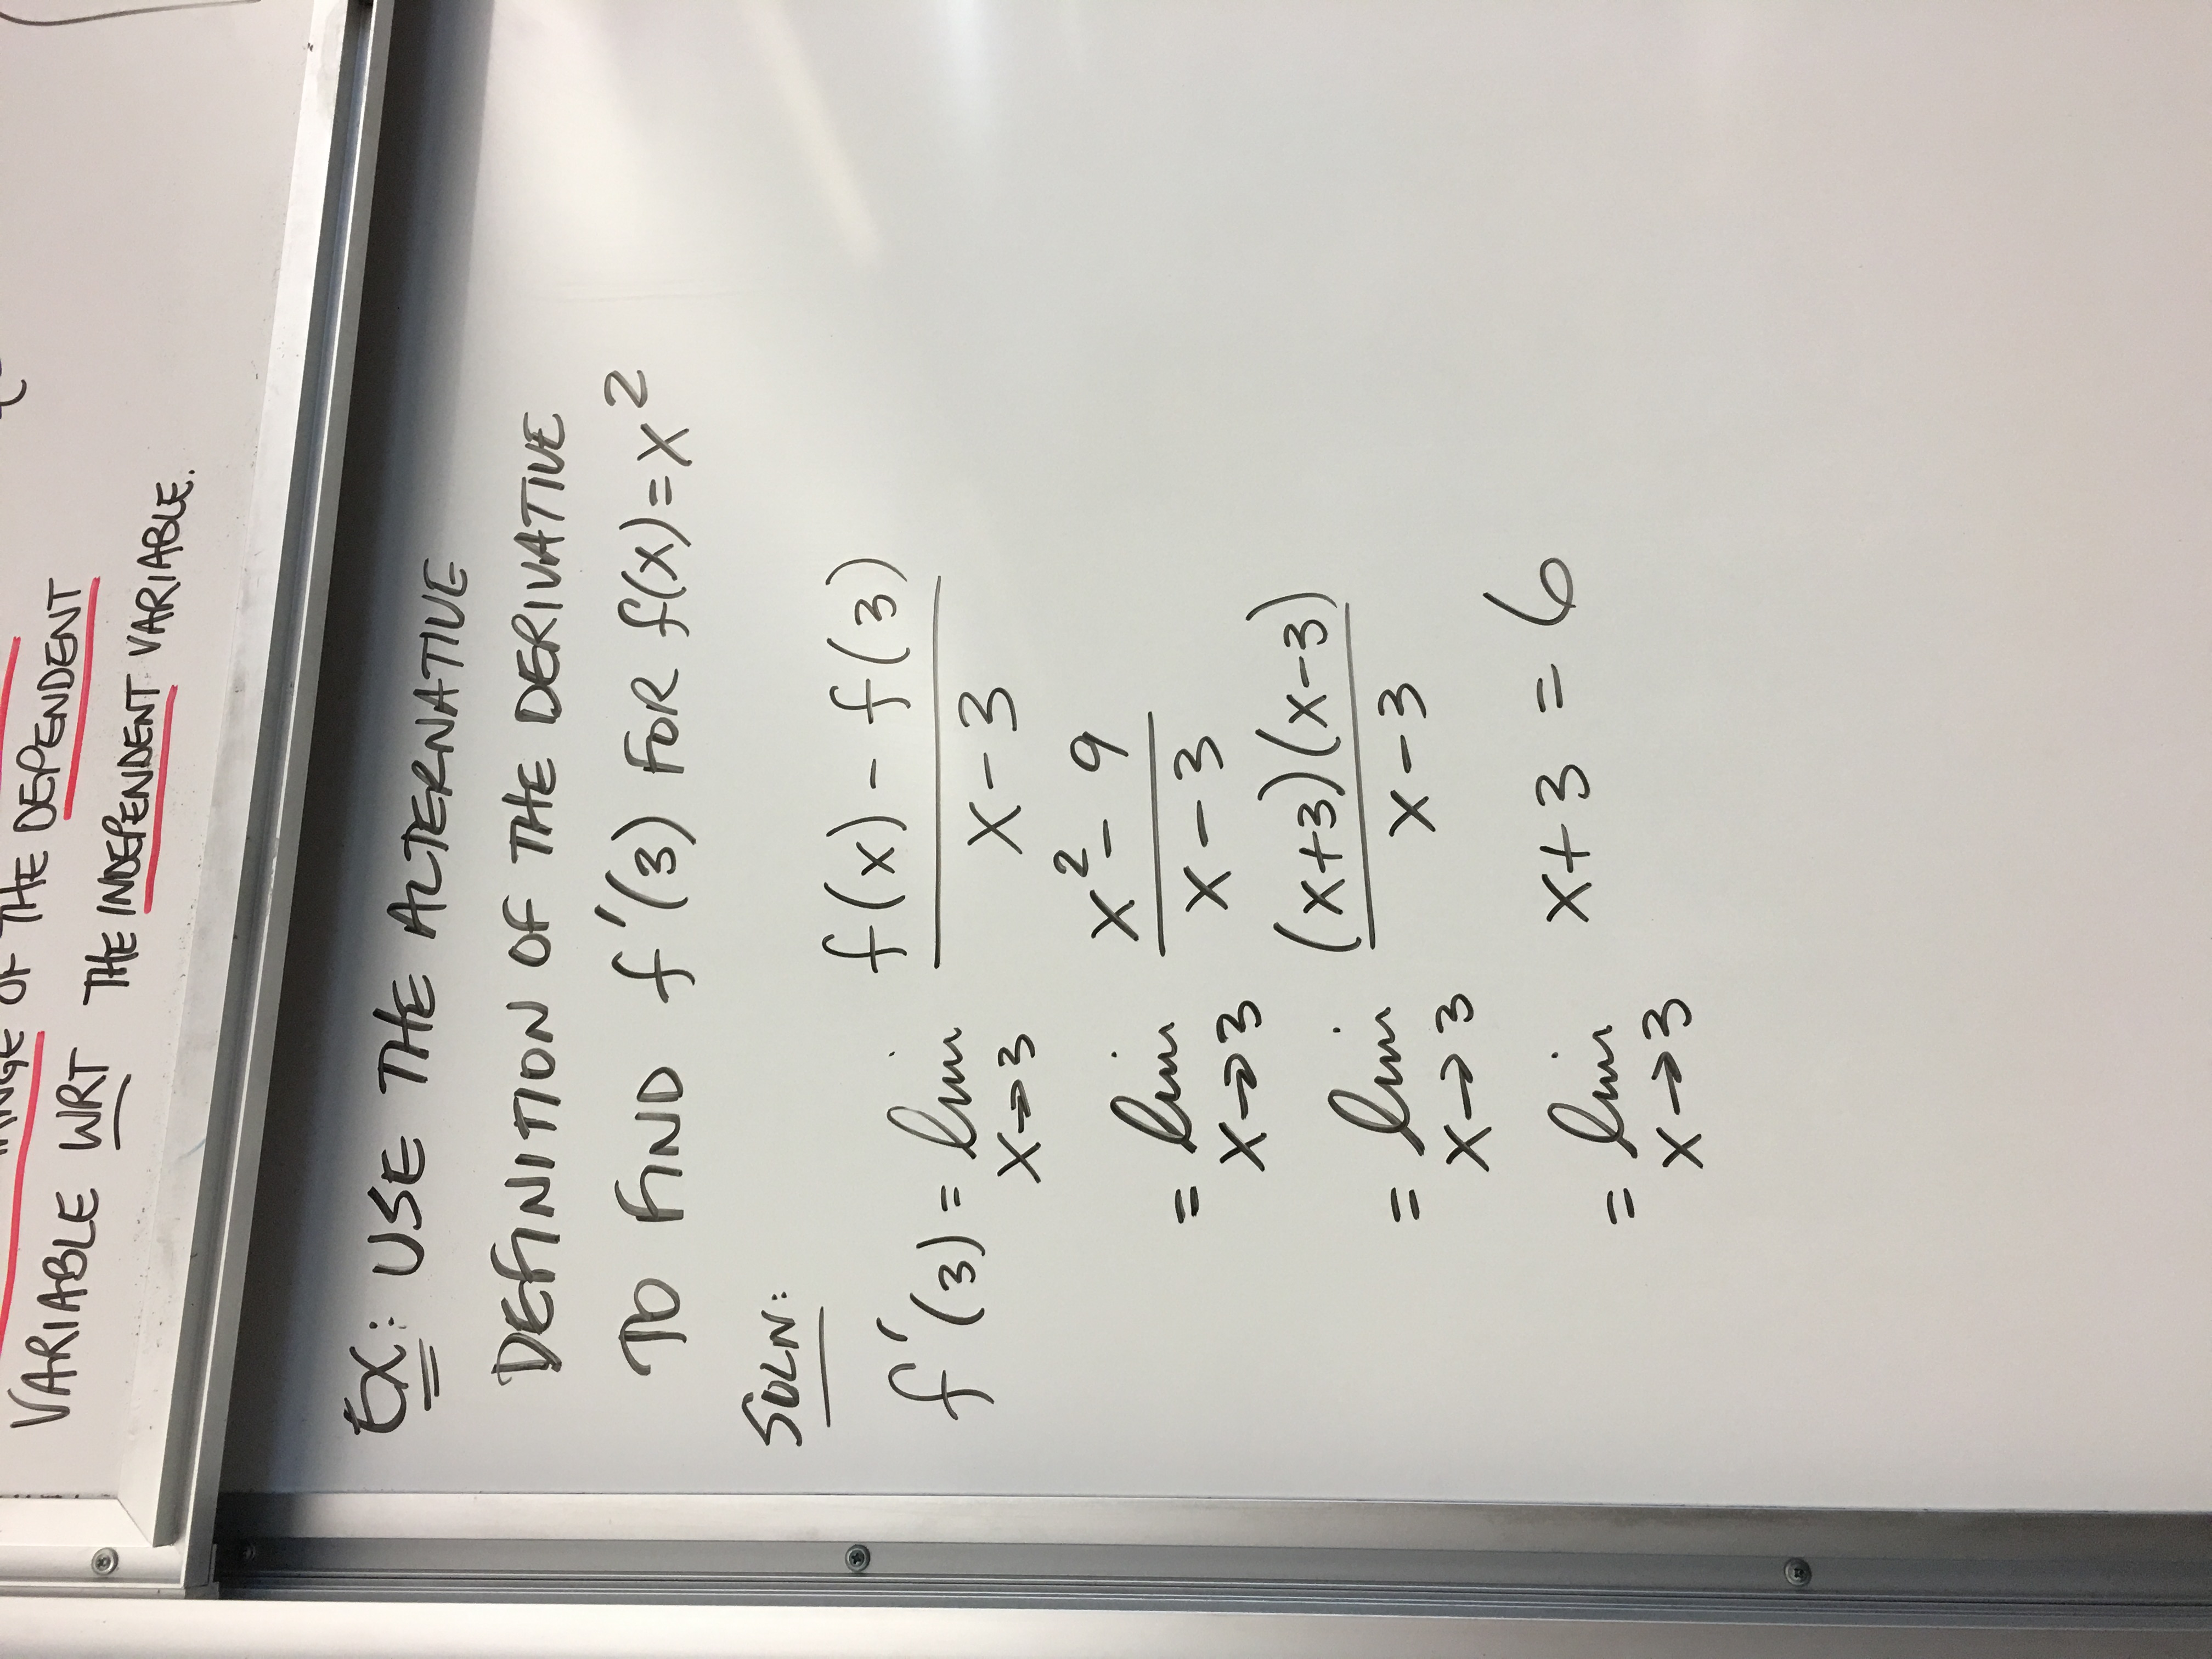 OF THE DEPENDENT
VARIABLE WRT THE INDEPENDENT VARIABLE.
EX: USE THE ALTERNATIVE
DEFINITION OF THE DERIVATIVE
TO FIND f'(3) FOR f(x)=x²
SOLN:
f'(3) = lim x→3 (f(x) - f(3))/(x - 3)
= lim x→3 (x² - 9)/(x - 3)
= lim x→3 ((x+3)(x-3))/(x-3)
= lim x→3 x+3 = 6